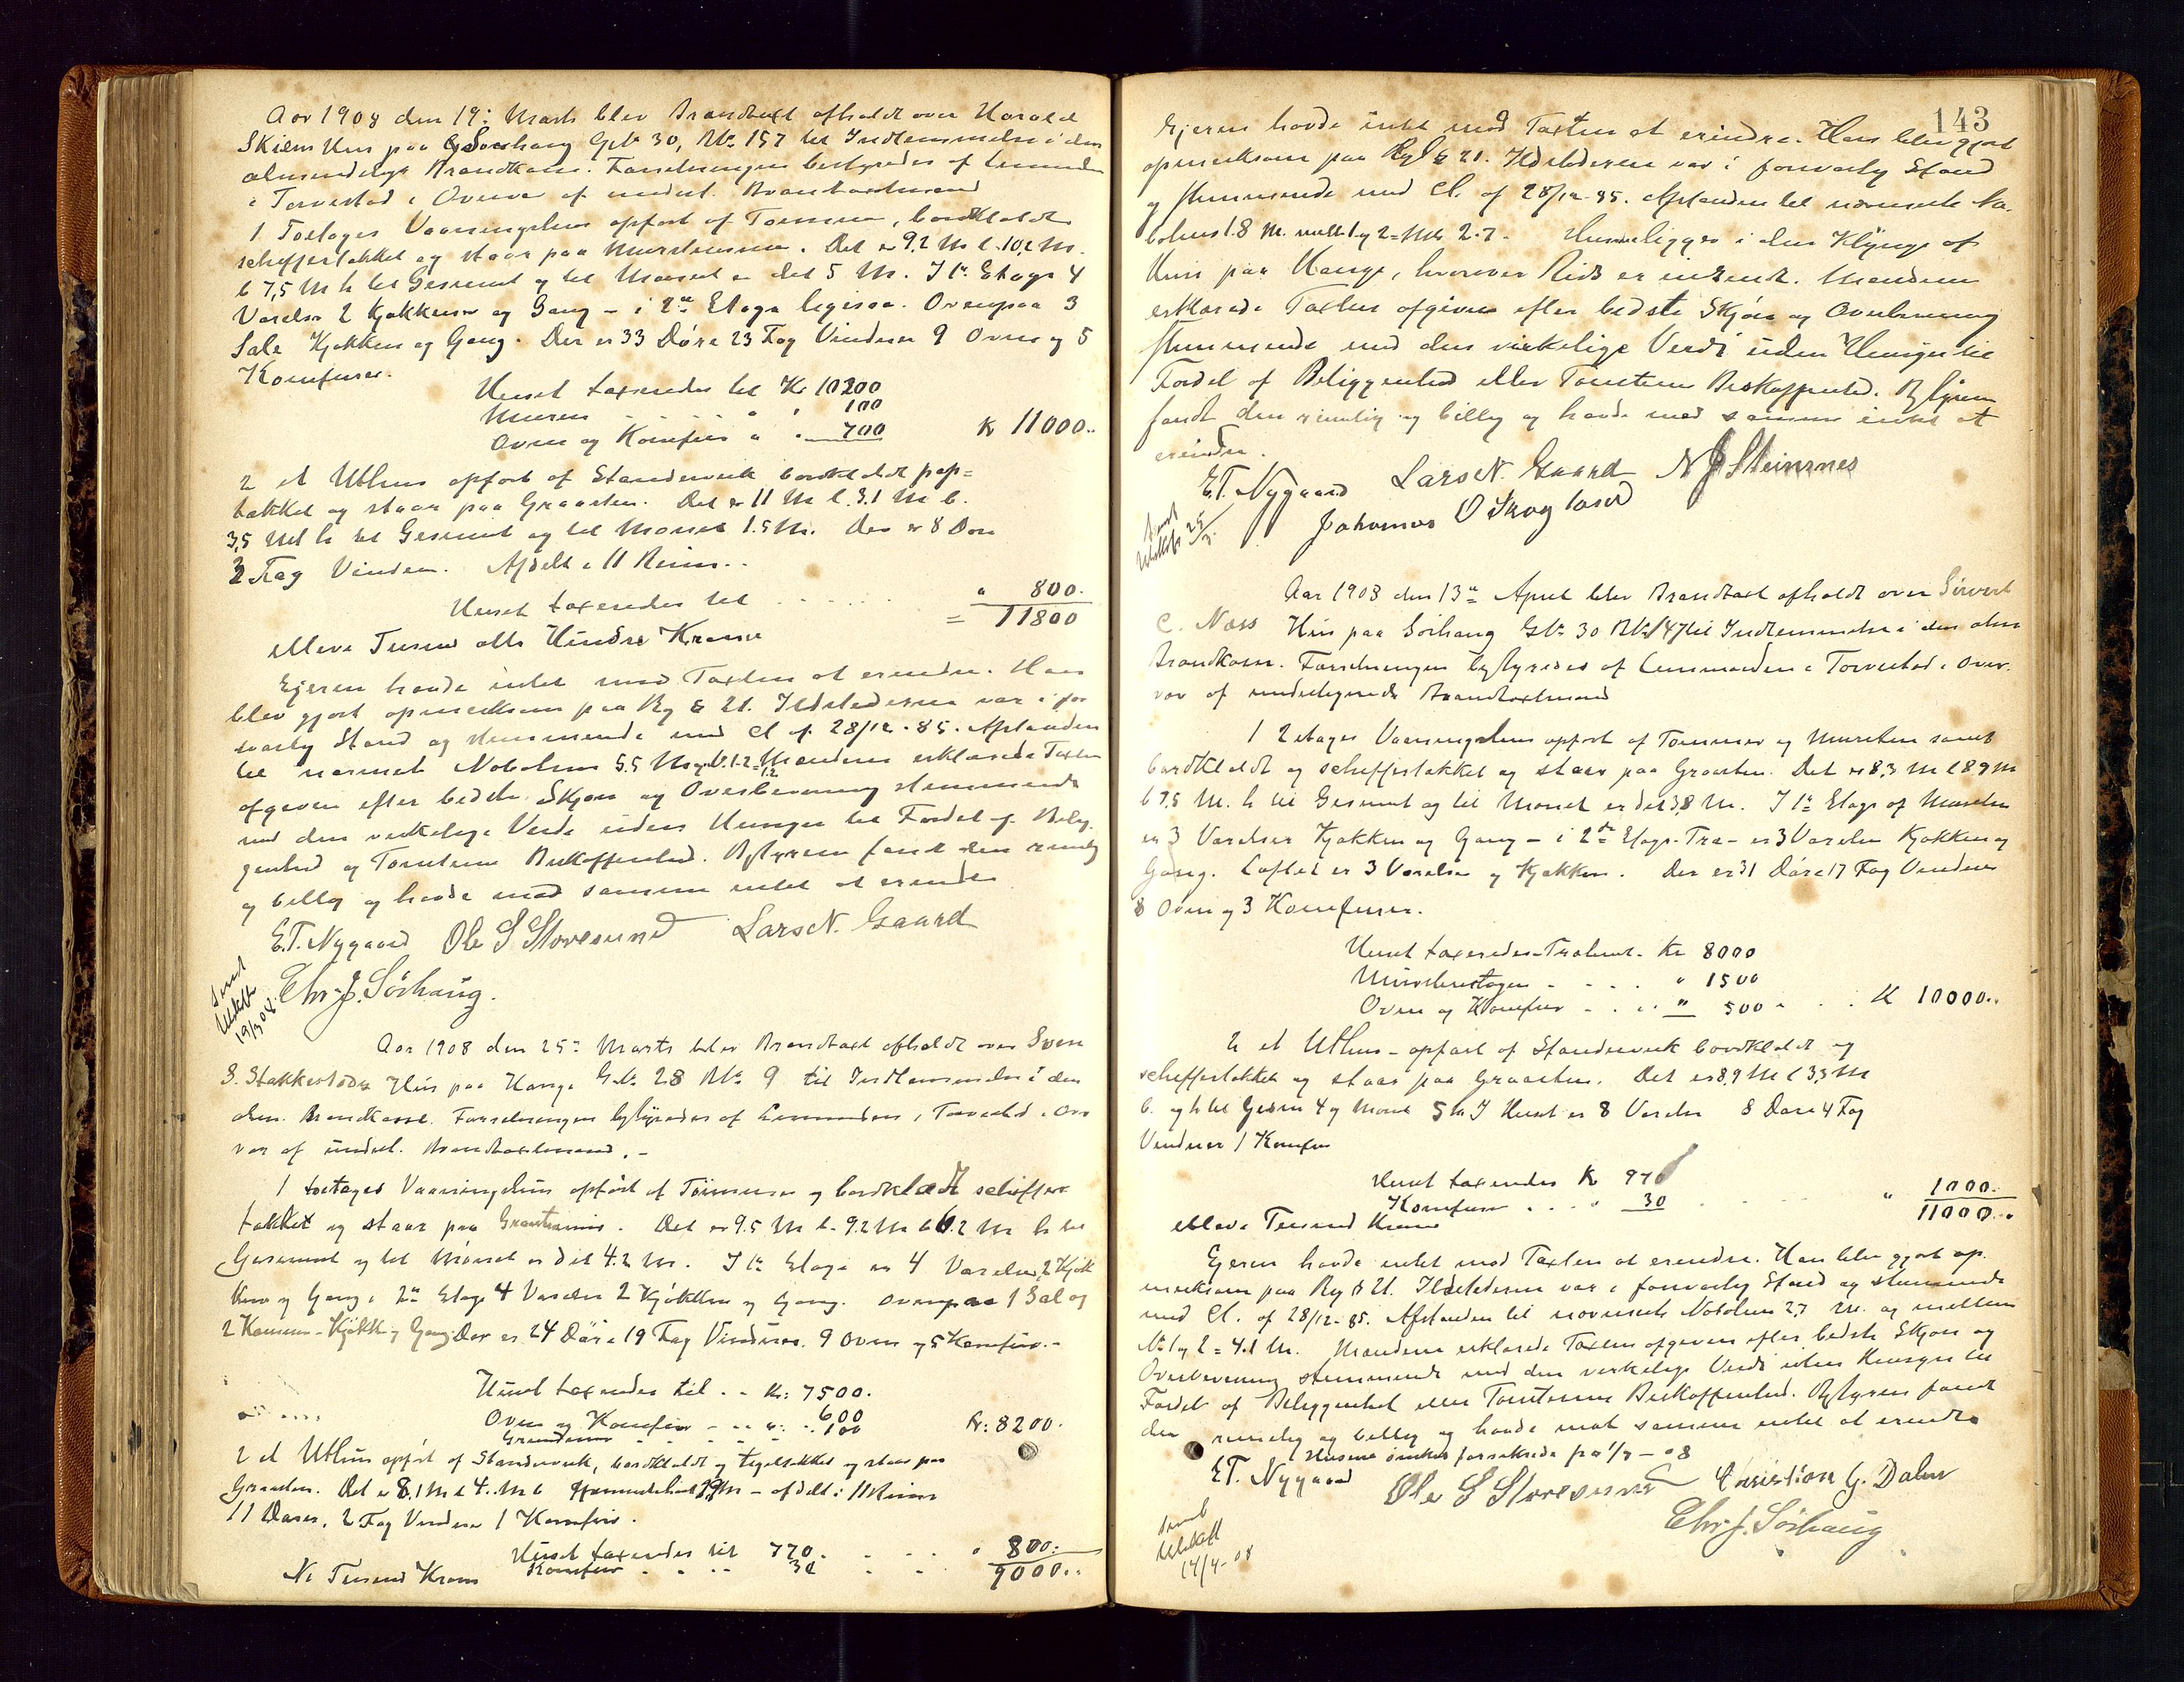 Aar 1908 den 19: Marts blev Brandtaxt afholdt over Harald
Skiens Hus paa Sørhaug G.No 30, B.No 157 til Indlemmelse i den
almindelige Brandkasse. Forretningen bestyredes af Lensmanden
i Torvestad i Overvær af undert. Brandtaxtmænd
1 Toetages Vaaningshus opført af Tømmer, bordklædt
schiffertækket og staar paa Murstensmur. Det er 9.2 M l. 10,2 M.
b 7,5 M h til Gesimst og til Mønset er det 5 M. I 1ste Etage 4
Værelser 2 Kjøkkener og Gang - i 2den Etage ligesaa. Ovenpaa 3
Sale Kjøkken og Gang. Der er 33 Døre 23 Fag Vinduer 9 Ovne og 5
Komfurer.
Huset taxeredes til Kr 10200
Muren " 100
Ovne og Komfur " 700 Kr 11000..
2 et Uthus opført af Standerverk bordklædt pap=
tækket og staar paa Graasten. Det er 11 M l. 3.1 M b.
3,5 M h til Gesimst og til Mønset 1.5 M. Der er 8 Døre
2 Fag Vinduer. Afdelt i 11 Reim..
Huset taxeredes til . . . . . " 800.
= 11800
elleve Tusend otte Hundre Kroner
Ejeren havde intet mod Taxten at erindre. Han
blev gjort opmerksom paa Rg § 21. Ildstederne var i for
svarlig Stand og stemmende med Cl. af 28/12-85. Afstanden
til nærmeste Nabohus 5.5 M og No 1-2 = 12 Mændene erklærede Taxten
afgiven efter bedste Skjøn og Overbevisning stemmende
med den virkelige Verdi uden Hensyn til Fordel af Belig
genhed og Tomtens Beskaffenhed. Bestyreren fandt den rimelig
og billig og havde mod samme intet at erindre
E.T. Nygaard Ole S Storesund Lars N. Gaard
Chr. J. Sörhaug.
Sendt
Udskrift
19/3 08.
Aar 1908 den 25: Marts blev Brandtaxt afholdt over Sven
S. Stakkestads Hus paa Hauge G.No 28 B.No 9 til Indlemmelse i den
alm. Brandkasse. Forretningen bestyredes af Lensmanden i Torvestad i Over
vær af undert. Brandtaxtmænd. -
1 toetages Vaaningshus opført af Tømmer og bordklædt schiffer
tækket og staar paa Graastensmur. Det er 9.5 M l. 9.2 M b 6.2 M h til
Gesimset og til Mønset er det 4.2 M. I 1ste Etage er 4 Værelser, 2 Kjøk
kener og Gang i 2den Etage 4 Værelser 2 Kjøkken og Gang. ovenpaa 1 Sal og
2 Kammer - Kjøkken og Gang. Der er 24 Døre 19 Fag Vinduer. 9 Ovne og 5 Komfur. -
Huset taxeredes til . . Kr: 7500.
Ovne og Komfur - . . " . 600
Grundmur 100 Kr: 8200.
2 et Uthus opført af Standerverk, bordklædt og teglstækket og staar paa
Graasten. Det er 8.1 M l 4. M b - afdelt i 11 Reim
11 Døre, 2 Fag Vinduer 1 Komfur.
Huset taxeredes til 770. . . . " 800.
Komfur . . . . 30 . .
Ni Tusend Kroner 9000..
143
Ejeren havde intet mod Taxten at erindre. Han blev gjort
opmerksom paa Rgl § 21. Ildstederne var i forsvarlig Stand
og stemmende med Cl. af 28/12-85. Afstanden til nærmeste Na-
bohus 1.8 M. mell. 1 og 2 = 2.7. Husene ligger i den Klynge af
Hus paa Hauge, hvorover Rids er indsendt. Mændene
erklærede Taxten afgiven efter bedste Skjøn og Overbevisning
stemmende med den virkelige Verdi uden Hensyn til
Fordel af Beliggenhed eller Tomtens Beskaffenhed. Bestyreren
fandt den rimelig og billig og havde mod samme intet at
erindre.
E.T. Nygaard Lars N. Gaard N J Steinsnes
Johannes O Skogland
Sendt
Udskrift 25/3.
Aar 1908 den 13de April blev Brandtaxt afholdt over Sivert
C. Næss Hus paa Sørhaug G.No 30 B.No 147 til Indlemmelse i den alm
Brandkasse. Forretningen bestyredes af Lensmanden i Torvestad i Over-
vær af undertegnede Brandtaxtmænd
1 2 etages Vaaningshus opført af Tømmer og Mursten samt
bordklædt og schiffertækket og staar paa Graasten. Det er 8,3 M l 8 9 M
b 7,5 M. h til Gesimst og til Mønset er det 3,8 M. I 1ste Etage af Mursten
er 3 Værelser Kjøkken og Gang - i 2den Etage - Træ - er 3 Værelser Kjøkken og
Gang. Loftet er 3 Værelser og Kjøkken. Der er 31 Døre 17 Fag Vinduer
8 Ovne og 3 Komfurer.
Huset taxeredes - Træhuset - Kr 8000
Murstensetagen - . . . " 1500
Ovne og Komfur - . . . " 500 - . . . Kr 10000..
2 et Uthus - opført af Standerverk bordklædt og
schiffertækket og staar paa Graasten. Det er 8,9 M l 3,3 M
b. og h til Gesims 4 og Mønet 5 M I Huset er 8 Værelser 8 Døre 4 Fag
Vinduer 1 Komfur
Huset taxeredes Kr 970
Komfuren . . . . " 30 " 1000.
elleve Tusend Kroner 11000..
Ejeren havde intet mod Taxten at erindre. Han blev gjort op-
merksom paa Rg § 21. Ildstederne var i forsvarlig Stand og stemmende
med Cl. af 28/12-85. Afstanden til nærmeste Nabohus 2,7 M. og mellem
No 1 og 2 = 4.1 M. Mændene erklærede Taxten afgiven efter bedste Skjøn og
Overbevisning stemmende med den virkelige Verdi uden Hensyn til
Fordel af Beliggenhed eller Tomternes Beskaffenhed. Bestyreren fandt
den rimelig og billig og havde mod samme intet at erindre
Husene ønskes forsikrede fra 1/7 - 08
E.T. Nygaard Ole S Storesund Christian G. Dahw
Chr. J. Sörhaug
Sendt
Udskrift
14/4-08